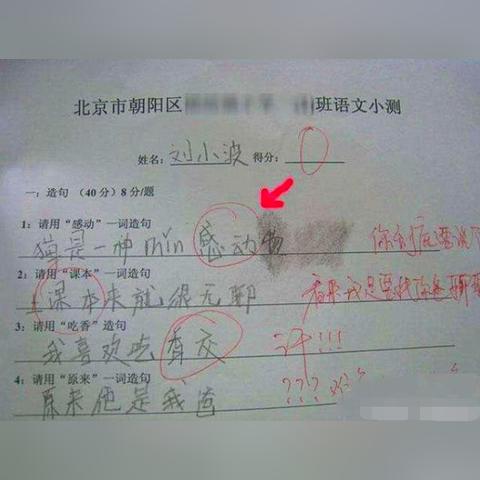 北京市朝阳区 班语文小测
姓名：刘小波 得分：0
一：造句 （40分）8分/题
1：请用“感动”一词造句
猫是一种min感动物
你到底要说
2：请用“课本”一词造句
上课本来就很无聊
看来我是要找你爸聊
3：请用“吃香”造句
我喜欢吃香交
汗!!!
4：请用“原来”一词造句
原来他是我爸
???